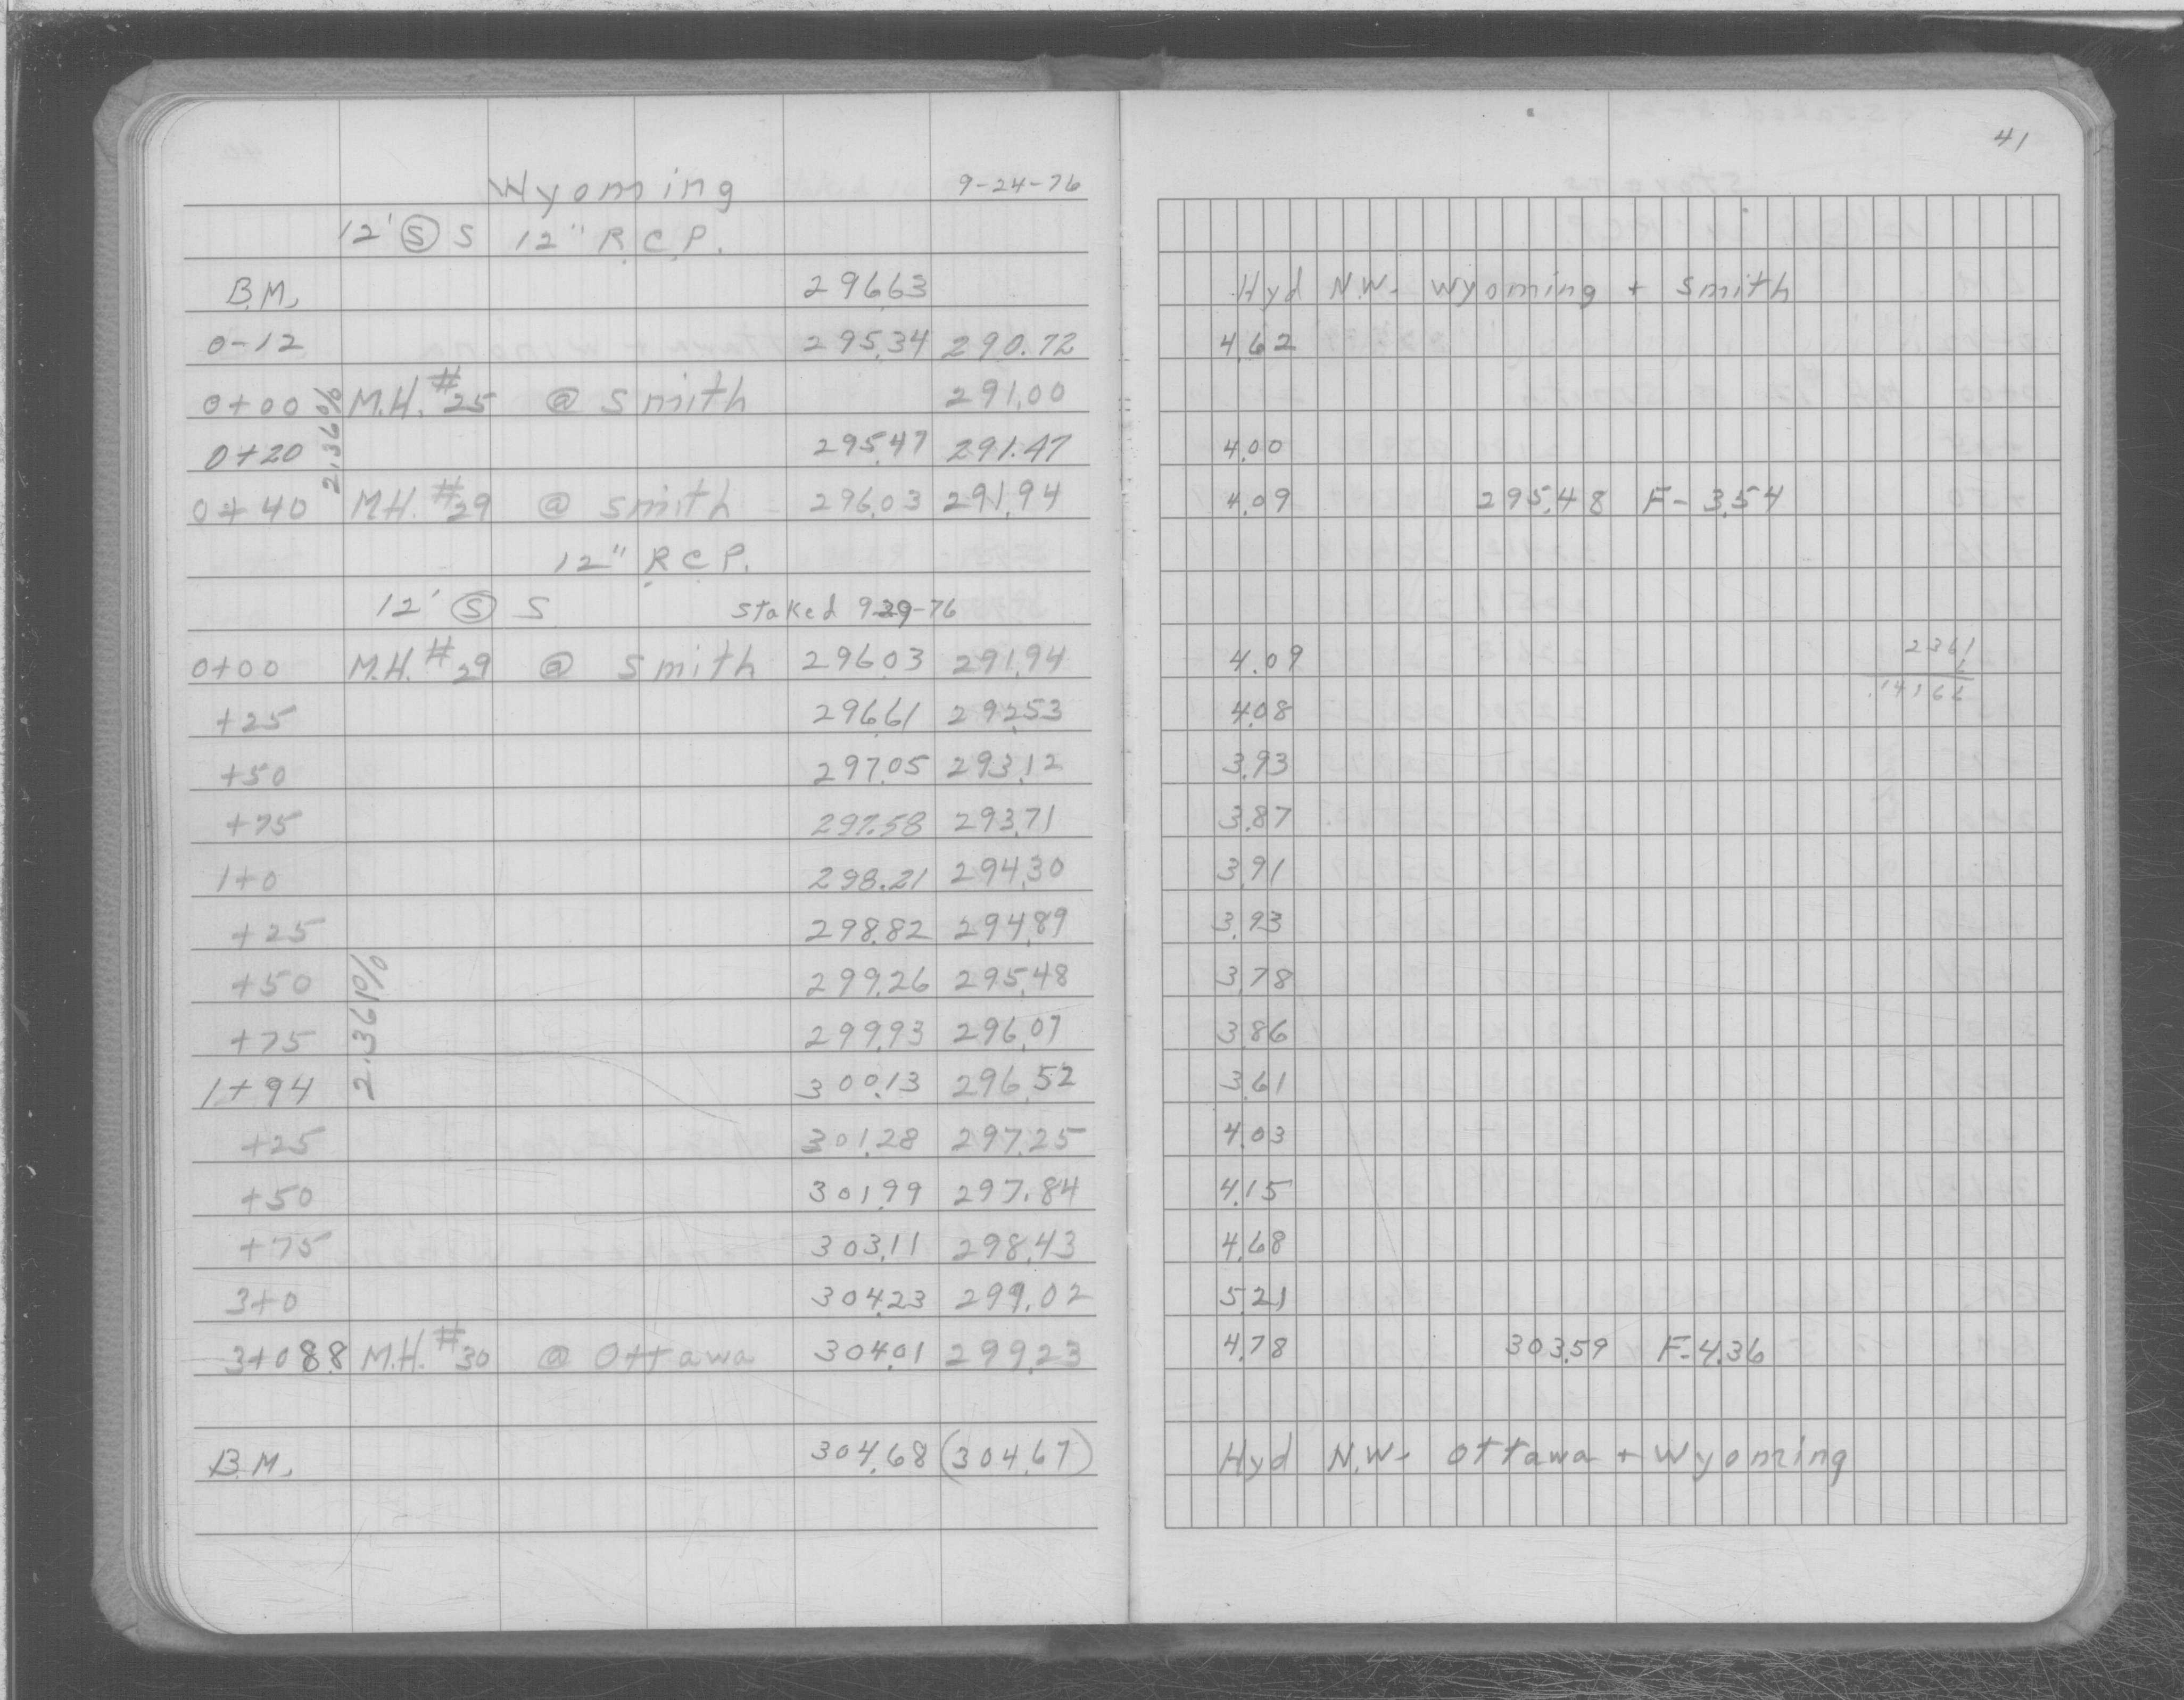 41
Wyoming 9-24-76
12' Ⓢ S 12" R.C.P.
B.M. 296.63 Hyd N.W. Wyoming + Smith
0-12 295.34 290.72 4.62
0+00 M.H. #25 @ Smith 291.00
2.36%
0+20 295.47 291.47 4.00
0+40 M.H. #29 @ Smith 296.03 291.94 4.09 295.48 F-3.54
12" R.C.P.
12' Ⓢ S Staked 9-29-76
0+00 M.H. #29 @ Smith 296.03 291.94 4.09 2361
+25 296.61 292.53 4.08 .14166
+50 297.05 293.12 3.93
+75 297.58 293.71 3.87
1+0 298.21 294.30 3.91
+25 298.82 294.89 3.93
+50 299.26 295.48 3.78
2.361%
+75 299.93 296.07 3.86
1+94 300.13 296.52 3.61
+25 301.28 297.25 4.03
+50 301.99 297.84 4.15
+75 303.11 298.43 4.68
3+0 304.23 299.02 5.21
3+088.8 M.H. #30 @ Ottawa 304.01 299.23 4.78 303.59 F-4.36
B.M. 304.68 (304.67) Hyd N.W. Ottawa + Wyoming